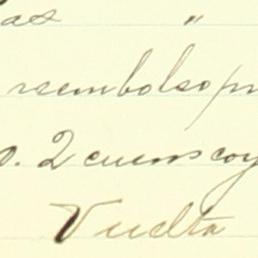 as "
rsembolso pr
o. 2 cuenscoy
Vuelta